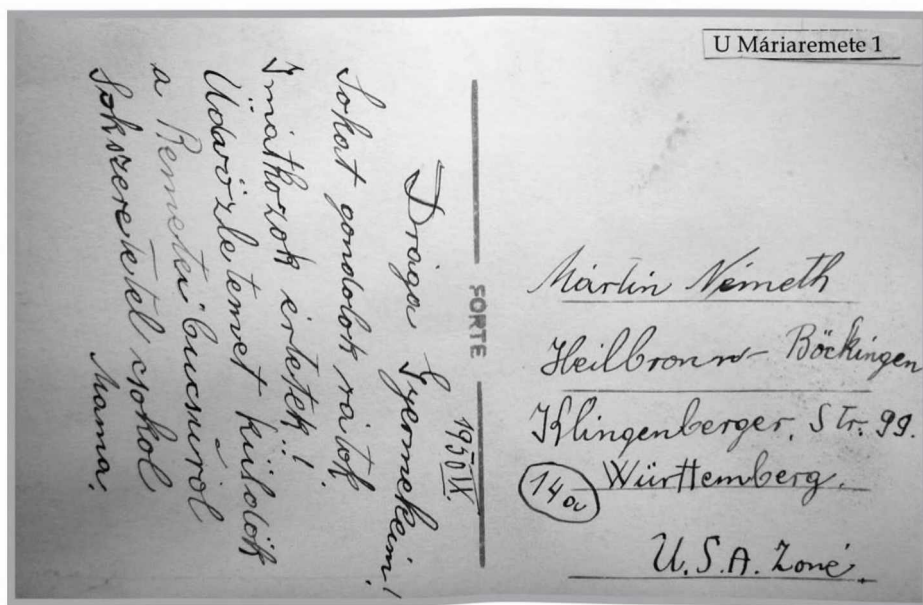 U Máriaremete 1
1950 IX.
Drága Gyermekeim!
Sokat gondolok rátok.
Imátkozok értetek!
Üdvözletemet küldök
a Remetei bucsúról
Sokszeretetel csokol
Mama.
FORTE
Mártin Németh
Heilbronn - Böckingen
Klingenberger. Str. 99.
14a Württemberg.
U.S.A. Zoné.